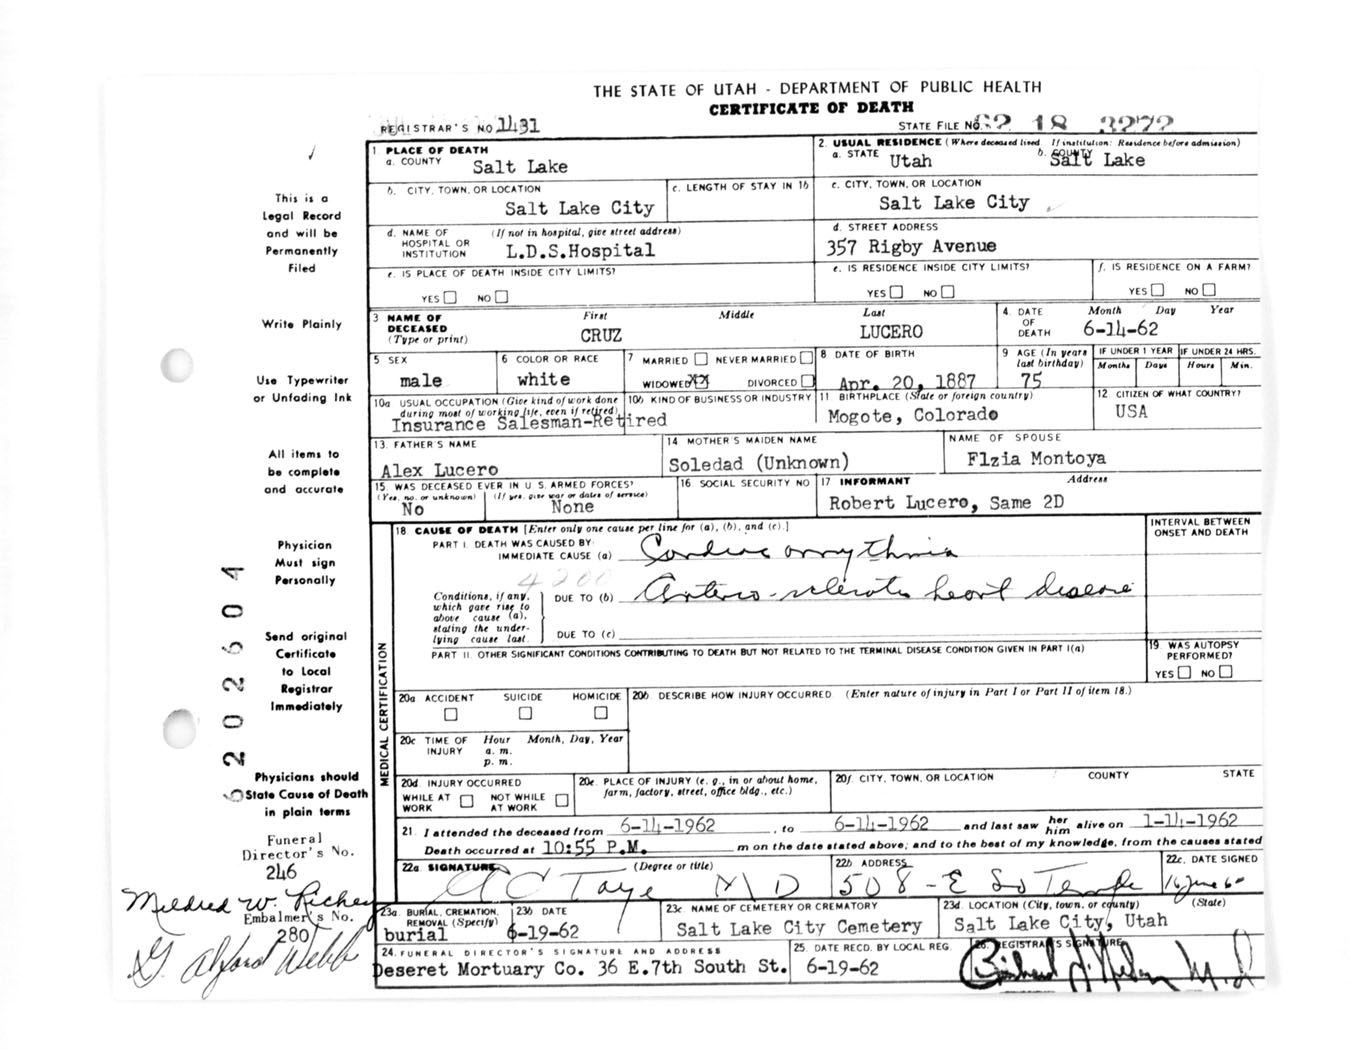 THE STATE OF UTAH - DEPARTMENT OF PUBLIC HEALTH
CERTIFICATE OF DEATH
REGISTRAR'S NO 1431 STATE FILE NO. 62 18 3272
1 PLACE OF DEATH
a. COUNTY Salt Lake
2. USUAL RESIDENCE (Where deceased lived. If institution: Residence before admission)
a. STATE Utah b. COUNTY Salt Lake
b. CITY, TOWN, OR LOCATION Salt Lake City
c. LENGTH OF STAY IN 1b
c. CITY, TOWN, OR LOCATION Salt Lake City
d. NAME OF HOSPITAL OR INSTITUTION (If not in hospital, give street address) L.D.S.Hospital
d. STREET ADDRESS 357 Rigby Avenue
e. IS PLACE OF DEATH INSIDE CITY LIMITS?
YES NO
e. IS RESIDENCE INSIDE CITY LIMITS?
YES NO
f. IS RESIDENCE ON A FARM?
YES NO
3 NAME OF DECEASED (Type or print) First Middle Last
CRUZ LUCERO
4. DATE OF DEATH Month Day Year
6-14-62
5 SEX male
6 COLOR OR RACE white
7 MARRIED NEVER MARRIED
WIDOWED XX DIVORCED
8 DATE OF BIRTH Apr. 20, 1887
9 AGE (In years last birthday) 75
IF UNDER 1 YEAR Months Days
IF UNDER 24 HRS. Hours Min.
10a USUAL OCCUPATION (Give kind of work done during most of working life, even if retired)
Insurance Salesman-Retired
10b KIND OF BUSINESS OR INDUSTRY
11 BIRTHPLACE (State or foreign country)
Mogote, Colorado
12 CITIZEN OF WHAT COUNTRY?
USA
13. FATHER'S NAME
Alex Lucero
14 MOTHER'S MAIDEN NAME
Soledad (Unknown)
NAME OF SPOUSE
Flzia Montoya
15. WAS DECEASED EVER IN U S. ARMED FORCES?
(Yes, no, or unknown) (If yes, give war or dates of service)
No None
16 SOCIAL SECURITY NO
17 INFORMANT Address
Robert Lucero, Same 2D
18 CAUSE OF DEATH [Enter only one cause per line for (a), (b), and (c).]
PART I. DEATH WAS CAUSED BY:
IMMEDIATE CAUSE (a) Cardiac arrythmia
4200
Conditions, if any, which gave rise to above cause (a), stating the underlying cause last.
DUE TO (b) Arterio-sclerotic heart disease
DUE TO (c)
INTERVAL BETWEEN ONSET AND DEATH
PART II. OTHER SIGNIFICANT CONDITIONS CONTRIBUTING TO DEATH BUT NOT RELATED TO THE TERMINAL DISEASE CONDITION GIVEN IN PART I(a)
19 WAS AUTOPSY PERFORMED?
YES NO
MEDICAL CERTIFICATION
20a ACCIDENT SUICIDE HOMICIDE
20b DESCRIBE HOW INJURY OCCURRED (Enter nature of injury in Part I or Part II of item 18.)
20c TIME OF INJURY Hour Month, Day, Year
a. m.
p. m.
20d. INJURY OCCURRED
WHILE AT WORK NOT WHILE AT WORK
20e. PLACE OF INJURY (e. g., in or about home, farm, factory, street, office bldg., etc.)
20f. CITY, TOWN, OR LOCATION COUNTY STATE
21. I attended the deceased from 6-14-1962, to 6-14-1962 and last saw her him alive on 1-14-1962
Death occurred at 10:55 P.M. m on the date stated above; and to the best of my knowledge, from the causes stated
22a. SIGNATURE (Degree or title)
M D
22b ADDRESS
508 - E So Temple
22c. DATE SIGNED
16 June 62
23a. BURIAL, CREMATION, REMOVAL (Specify)
burial
23b DATE
6-19-62
23c NAME OF CEMETERY OR CREMATORY
Salt Lake City Cemetery
23d. LOCATION (City, town, or county) (State)
Salt Lake City, Utah
24. FUNERAL DIRECTOR'S SIGNATURE AND ADDRESS
Deseret Mortuary Co. 36 E.7th South St.
25. DATE RECD. BY LOCAL REG.
6-19-62
26. REGISTRAR'S SIGNATURE
M.D
This is a
Legal Record
and will be
Permanently
Filed
Write Plainly
Use Typewriter
or Unfading Ink
All items to
be complete
and accurate
Physician
Must sign
Personally
Send original
Certificate
to Local
Registrar
Immediately
Physicians should
State Cause of Death
in plain terms
Funeral
Director's No.
246
Mildred W. Richey
Embalmer's No.
280
G. Alford Webb